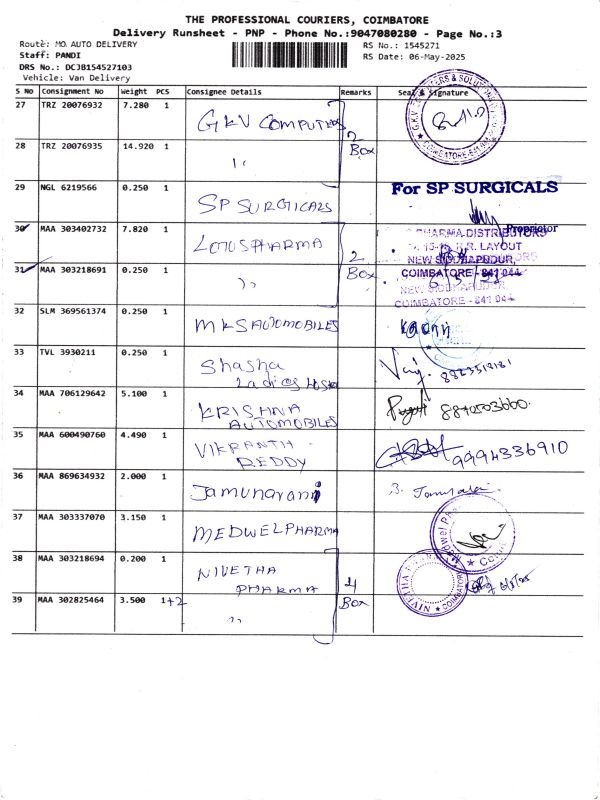 THE PROFESSIONAL COURIERS, COIMBATORE
Delivery Runsheet - PNP - Phone No.:9047080280 - Page No.:3
Route: MO. AUTO DELIVERY
RS No.: 1545271
Staff: PANDI
RS Date: 06-May-2025
DRS No.: DCJB154527103
Vehicle: Van Delivery
S No Consignment No Weight PCS Consignee Details Remarks Seal & Signature
27 TRZ 20076932 7.280 1 GKV COMPUTERS
2
Box
28 TRZ 20076935 14.920 1 ''
29 NGL 6219566 0.250 1 SP SURGICALS
For SP SURGICALS
Proprietor
30 MAA 303402732 7.820 1 LOTUSPHARMA
2
Box
PHARMA DISTRIBUTORS
LAYOUT
NEW SIDDHAPUDUR,
COIMBATORE - 641 044
31 MAA 303218691 0.250 1 ''
NEW SIDDHAPUDUR,
COIMBATORE - 641 044
32 SLM 369561374 0.250 1 MKSAUTOMOBILES
33 TVL 3930211 0.250 1 Shasha
Ladies Hostel
34 MAA 706129642 5.100 1 KRISHNA
AUTOMOBILES
35 MAA 600490760 4.490 1 VIKRANTH
REDDY
9994336910
36 MAA 869634932 2.000 1 Jamunarani
37 MAA 303337070 3.150 1 MEDWELPHARMA
38 MAA 303218694 0.200 1 NIVETHA
PHARMA
4
Box
39 MAA 302825464 3.500 1+2 ''